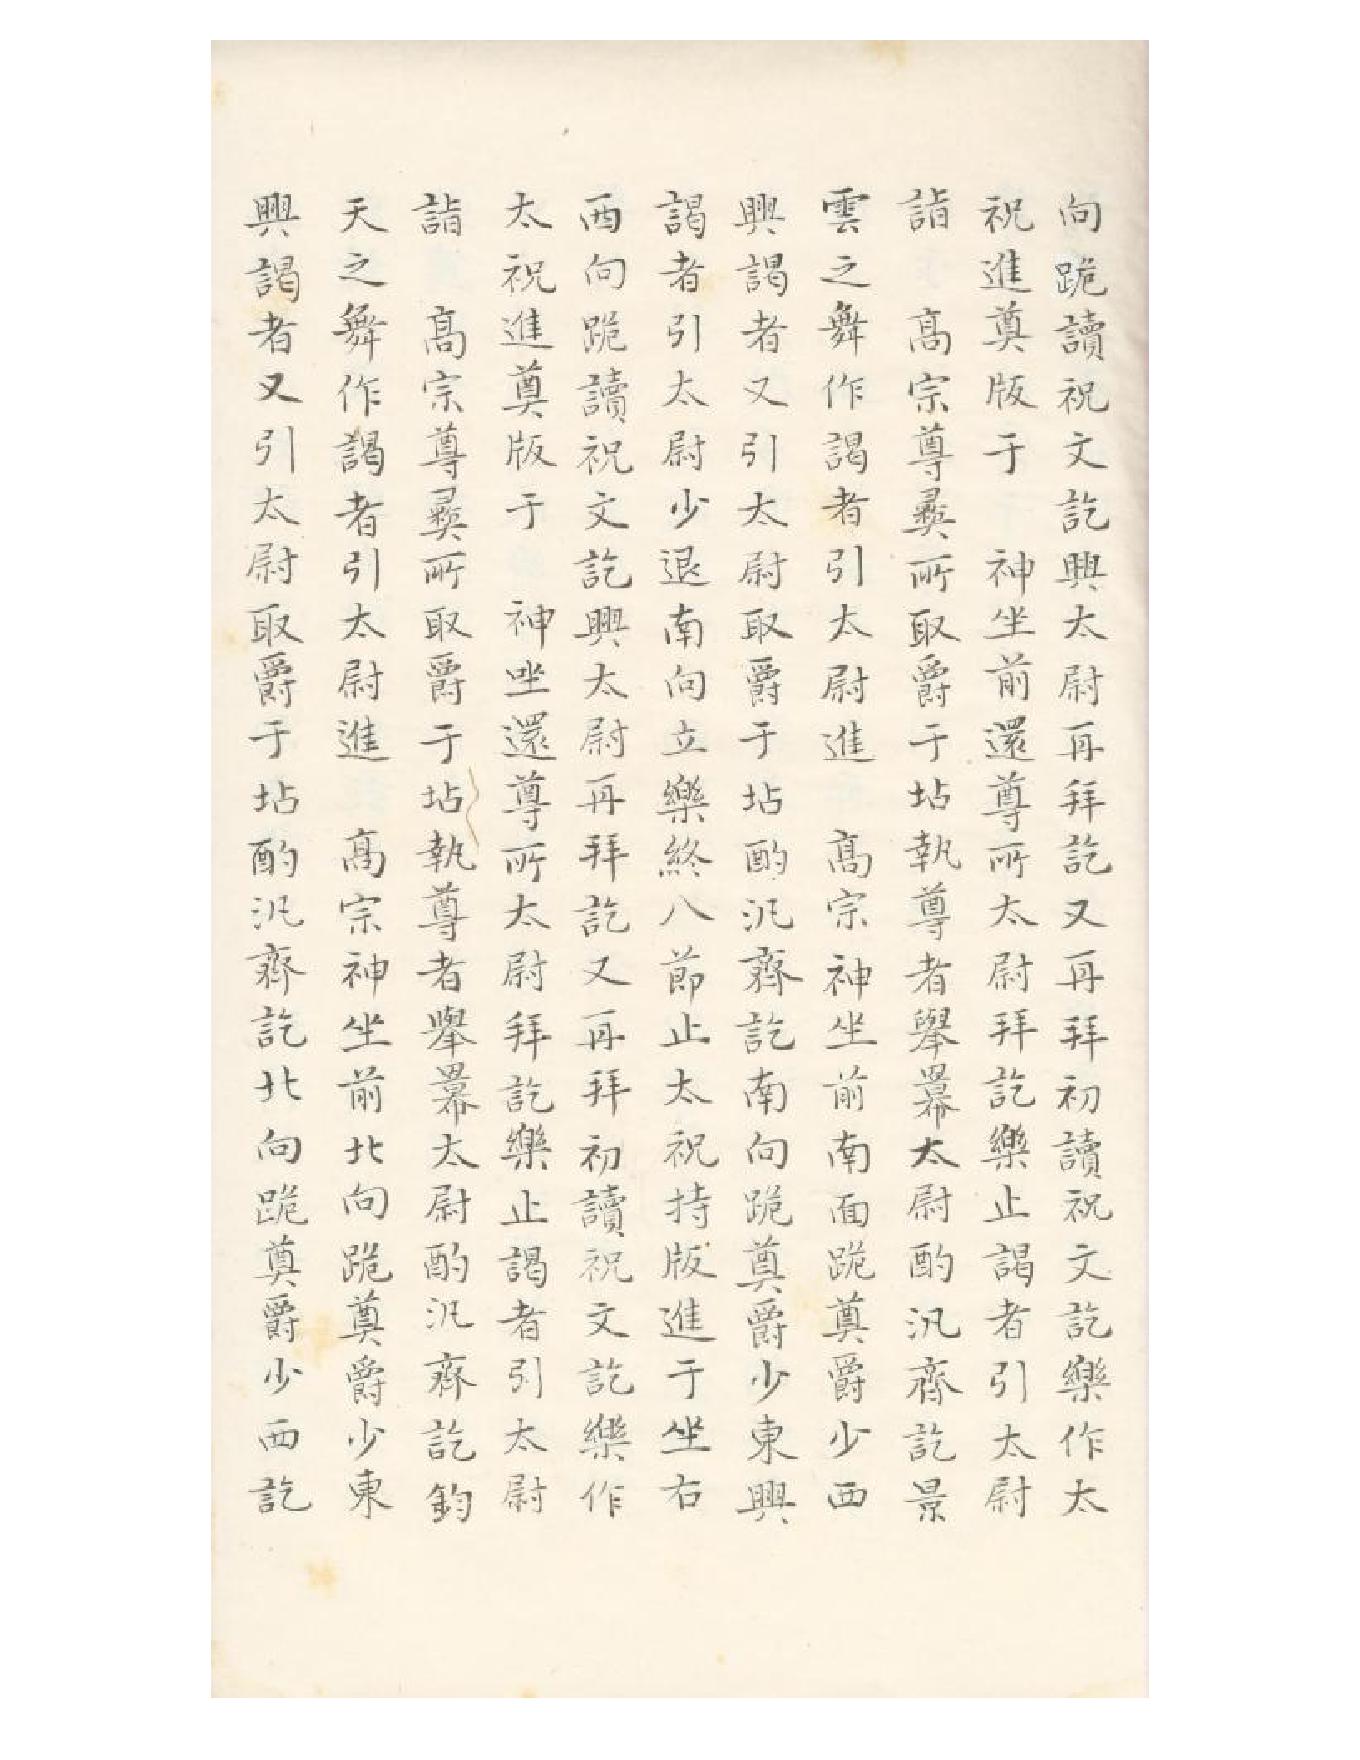 向跪讀祝文訖興太尉再拜訖又再拜初讀祝文訖樂作太
祝進奠版于　神坐前還尊所太尉拜訖樂止謁者引太尉
詣　高宗尊彝所取爵于坫執尊者舉冪太尉酌汎齊訖景
雲之舞作謁者引太尉進　高宗神坐前南面跪奠爵少西
興謁者又引太尉取爵于坫酌汎齊訖南向跪奠爵少東興
謁者引太尉少退南向立樂終八節止太祝持版進于坐右
西向跪讀祝文訖興太尉再拜訖又再拜初讀祝文訖樂作
太祝進奠版于　神坐還尊所太尉拜訖樂止謁者引太尉
詣　高宗尊彝所取爵于坫執尊者舉冪太尉酌汎齊訖鈞
天之舞作謁者引太尉進　高宗神坐前北向跪奠爵少東
興謁者又引太尉取爵于坫酌汎齊訖北向跪奠爵少西訖